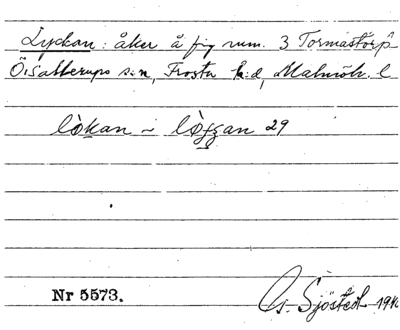 Lyckan: åker å fig num. 3 Tormastorp
Ö. Sallerups s:n, Frosta h:d, Malmöh. l
lòkan ~ lòggan 29
Nr 5573.
G. Sjöstedt